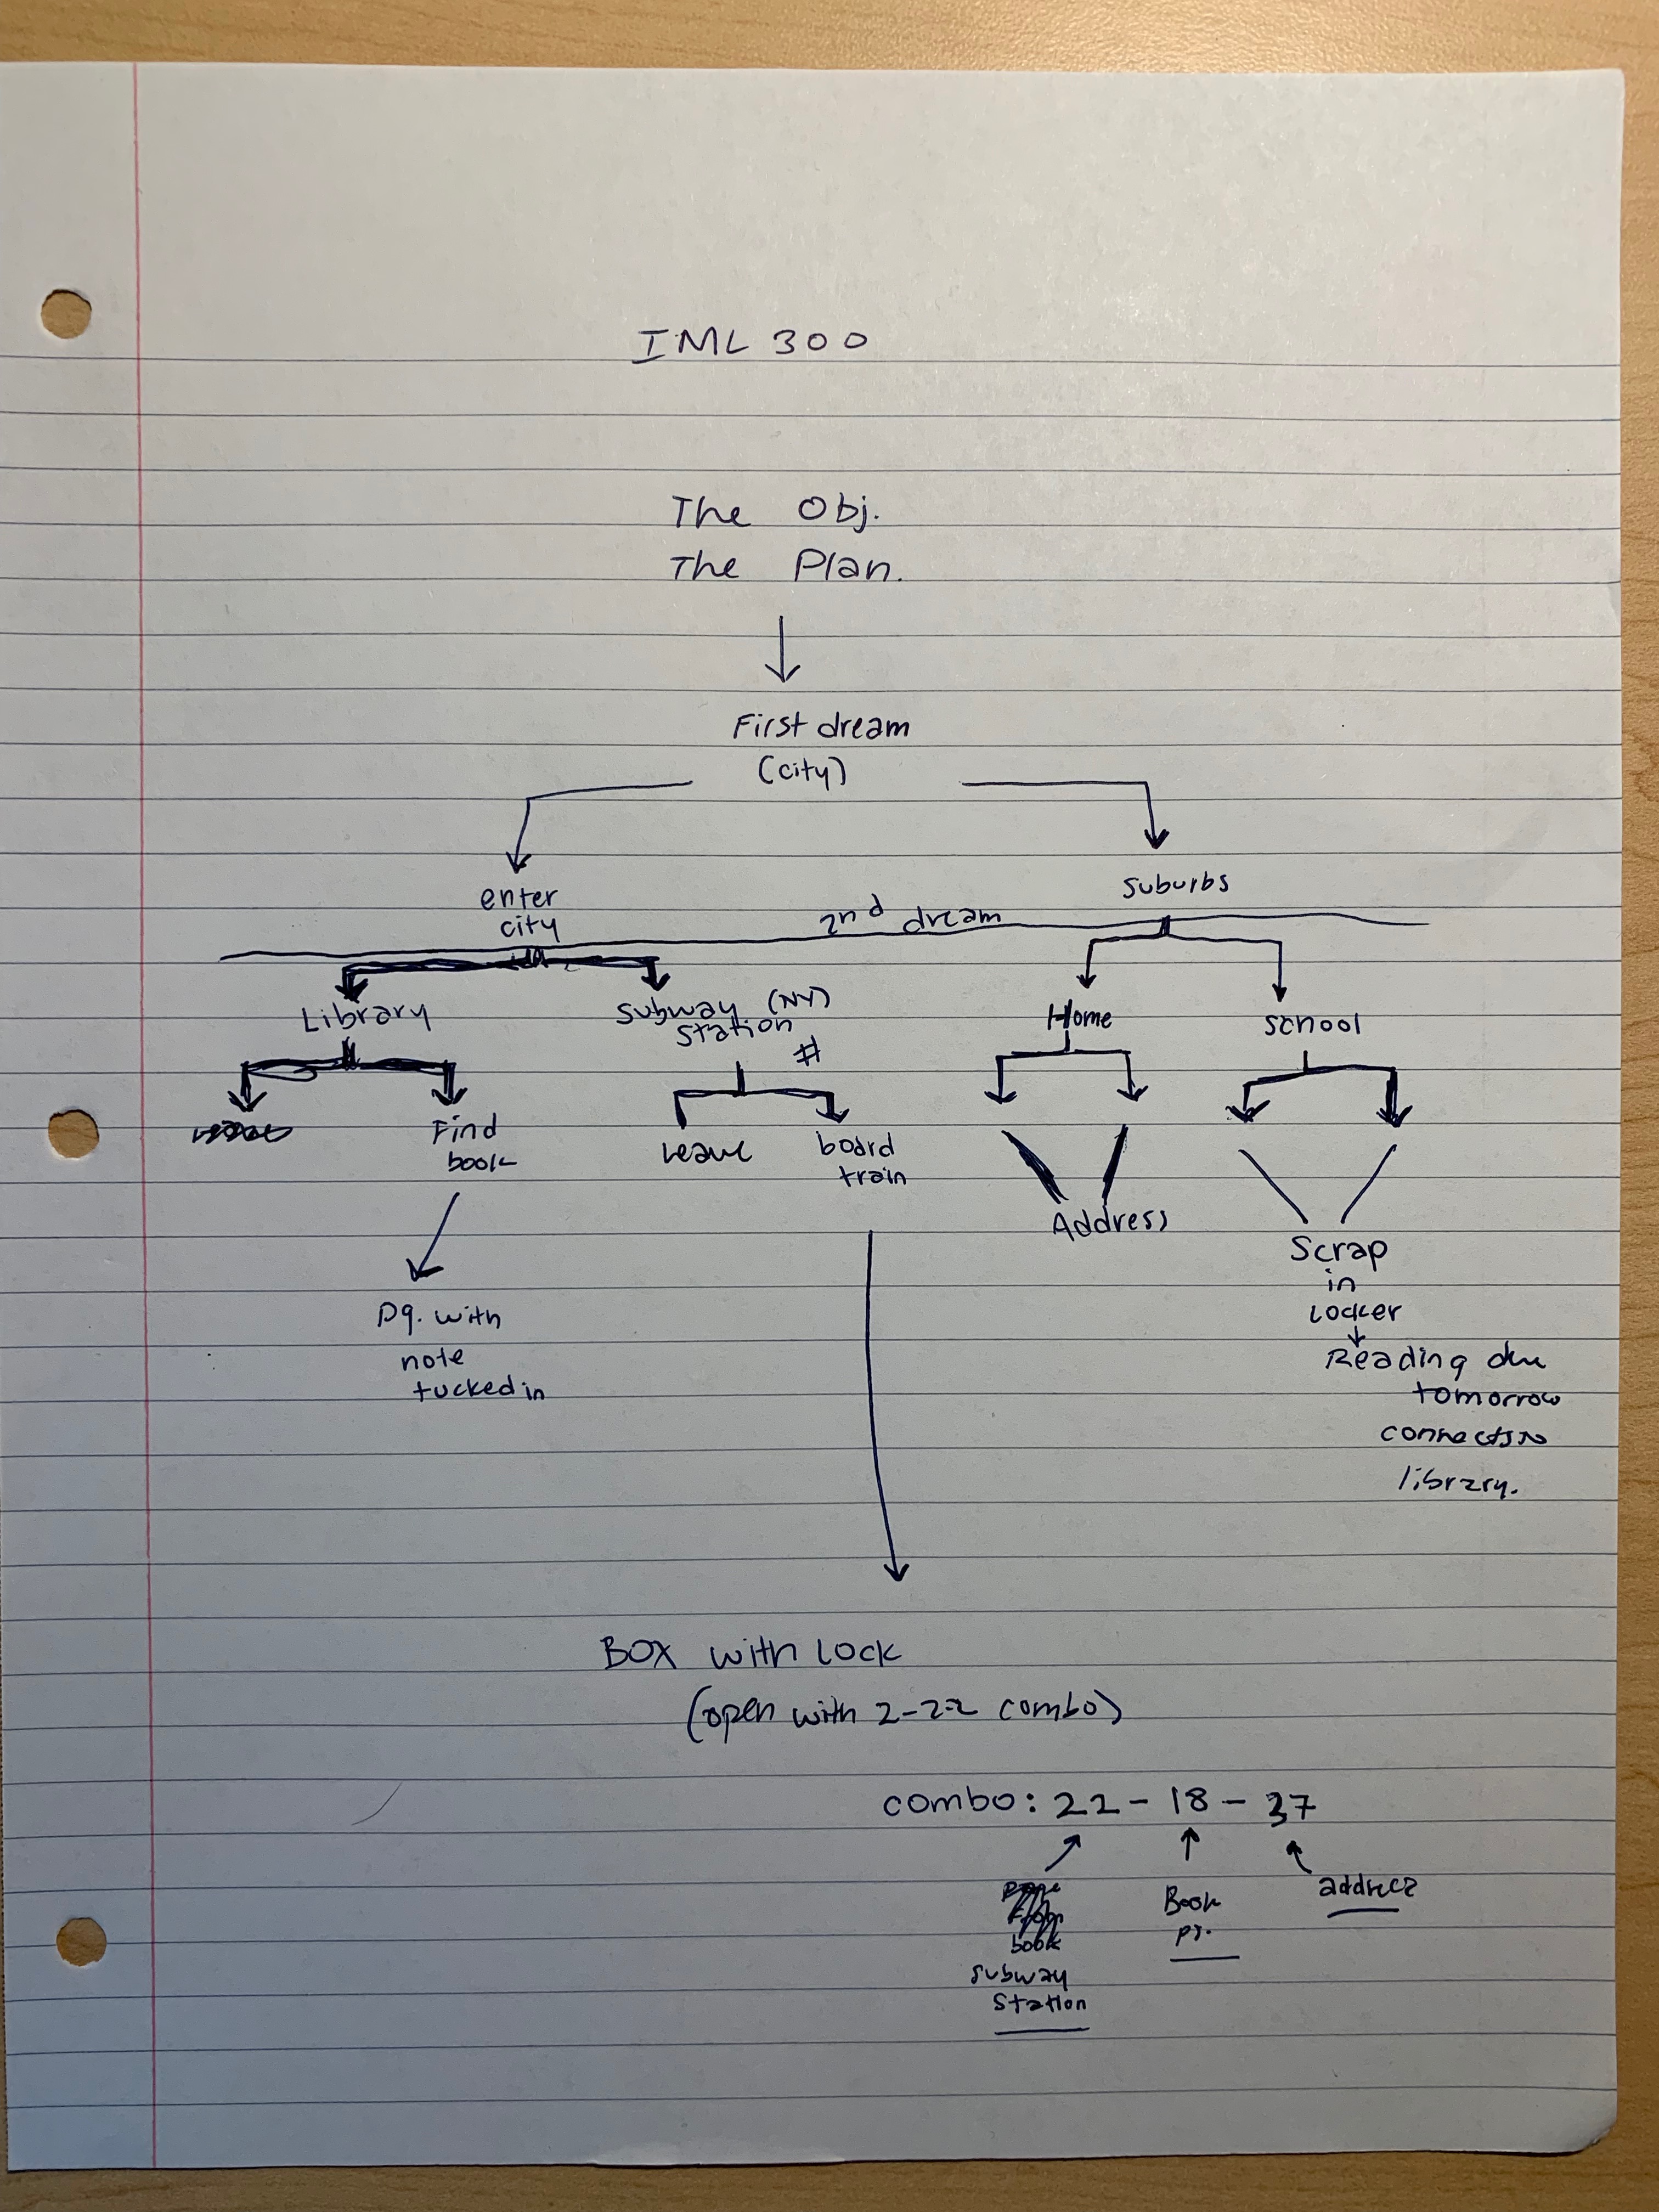 IML 300
The Obj.
The Plan.
First dream
(city)
enter
city
2nd dream
suburbs
Library
Subway (NY)
Station
#
Home
school
Find
book
leave
board
train
Address
Scrap
in
locker
Reading due
tomorrow
connects to
library.
Pg. with
note
tucked in
BOX with lock
(open with 2-22 combo)
combo: 22 - 18 - 37
book
subway
station
Book
pg.
address